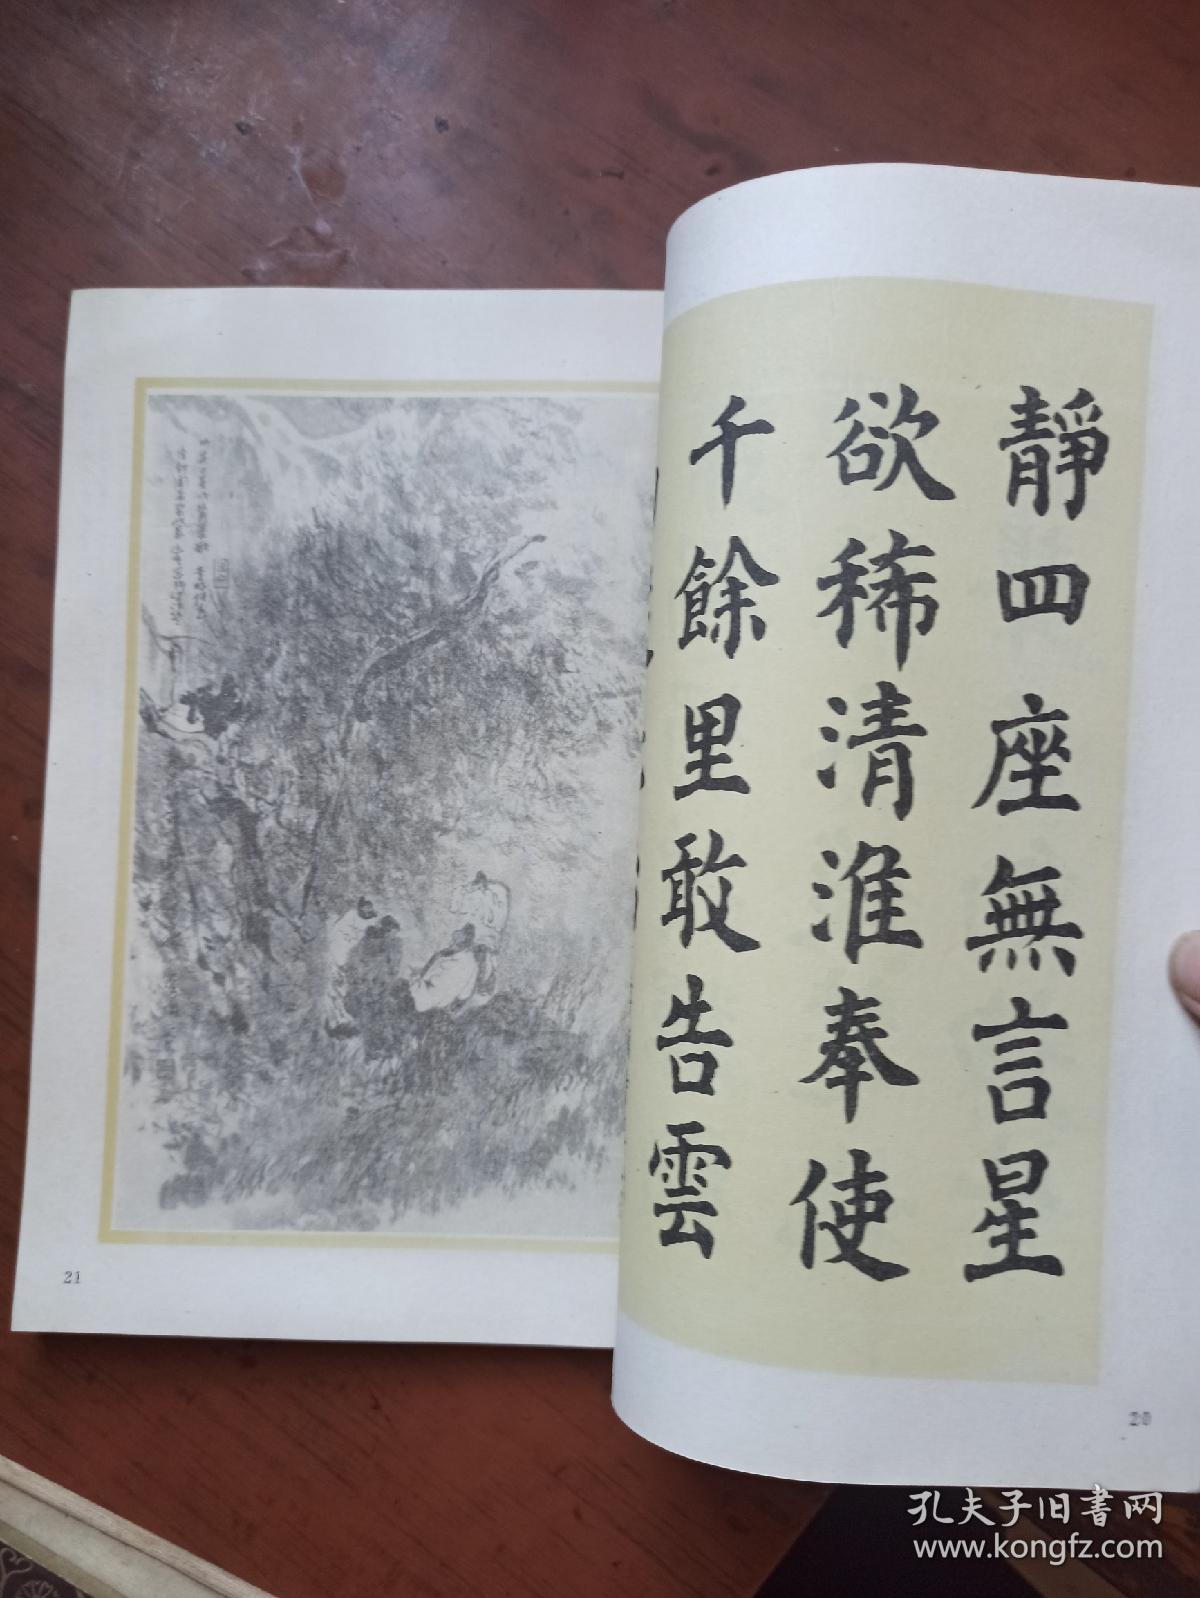 靜四座無言星
欲稀清淮奉使
千餘里敢告雲
20
21
孔夫子旧書网
www.kongfz.com